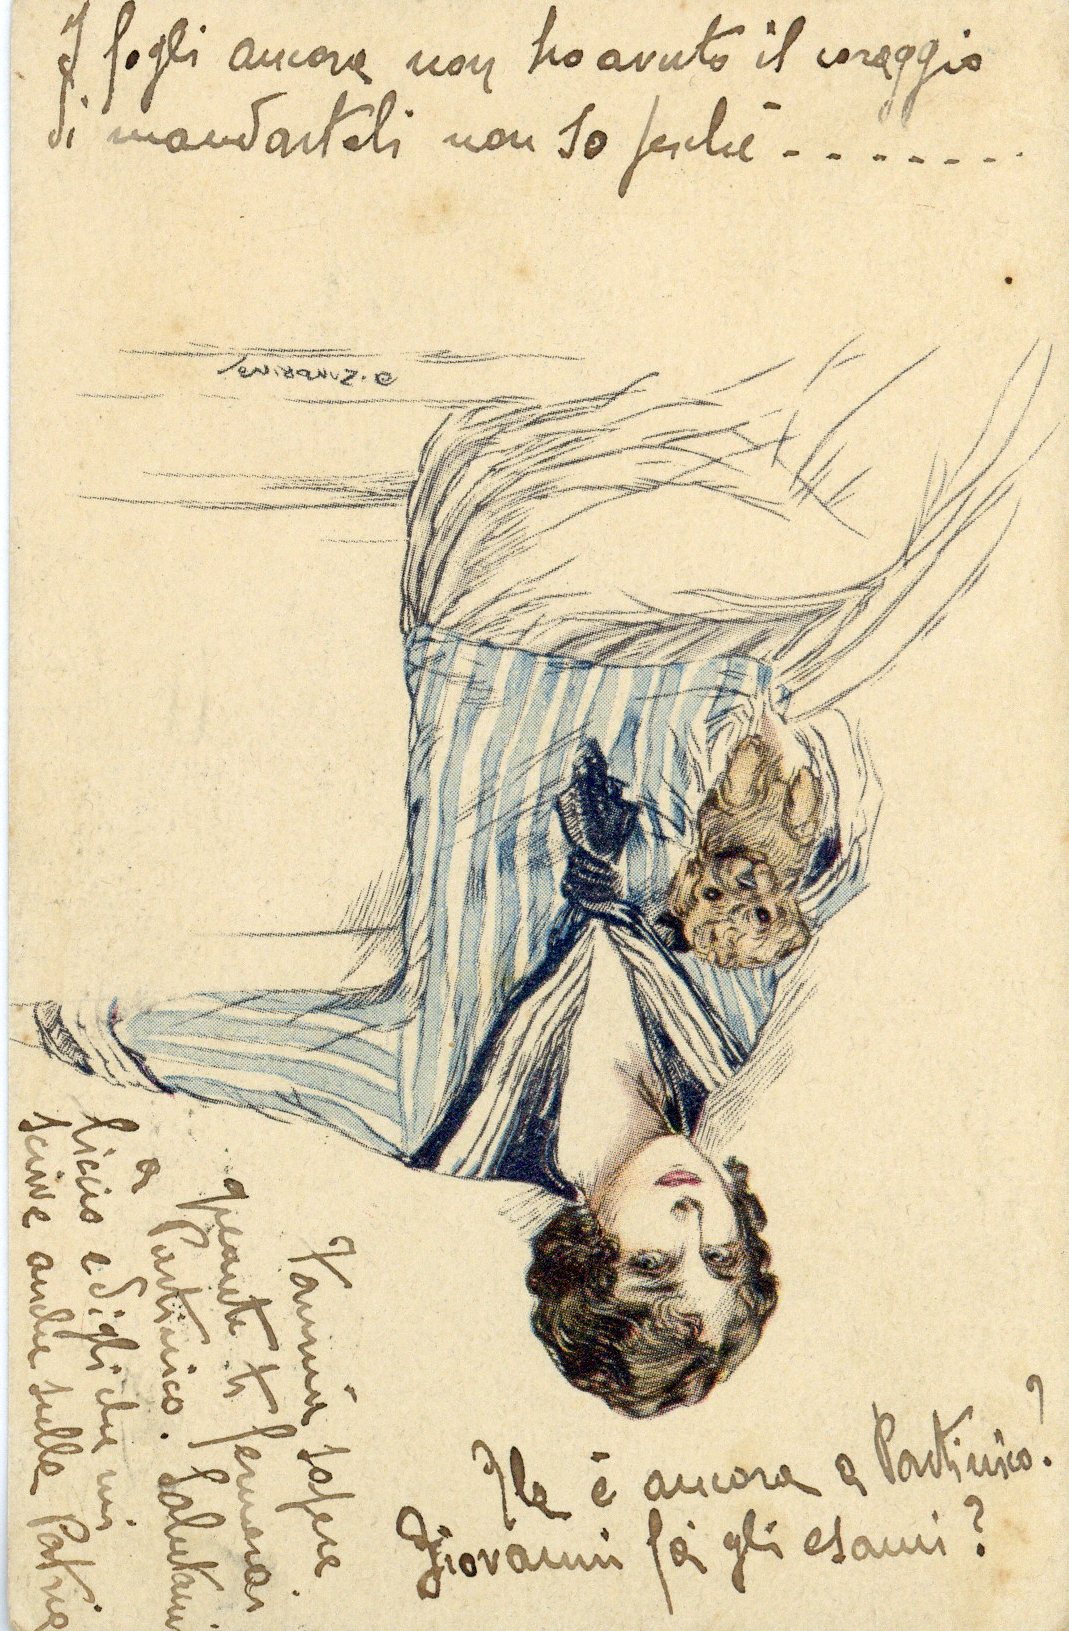 I fogli ancora non ho avuto il coraggio
di mandarteli non so perchè - - - - - - - -
Zandrino
Ila è ancora a Partinico?
Giovanni fà gli esami?
Fammi sapere
quanto ti fermerai
a Partinico. Salutami
Liccio e digli che mi
scrive anche sulla Patria